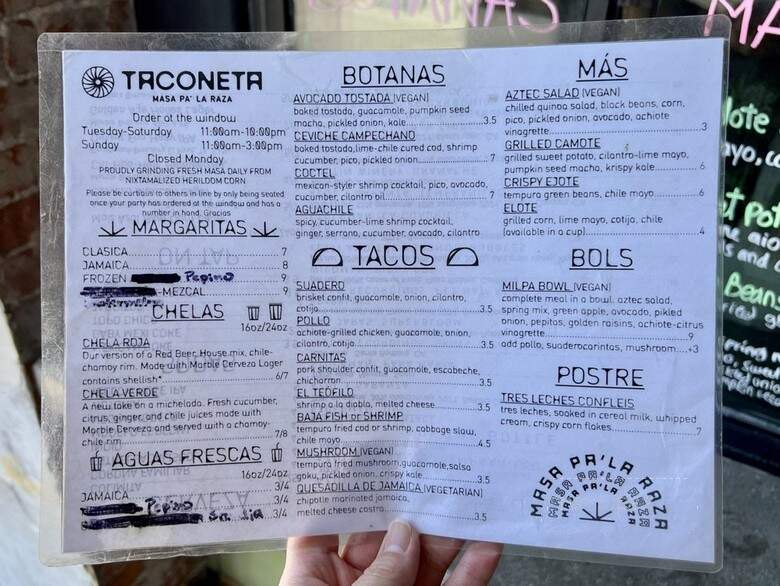 TACONETA
MASA PA' LA RAZA
Order at the window
Tuesday-Saturday 11:00am-10:00pm
Sunday 11:00am-3:00pm
Closed Monday
PROUDLY GRINDING FRESH MASA DAILY FROM
NIXTAMALIZED HERILOOM CORN
Please be curtious to others in line by only being seated
once your party has ordered at the window and has a
number in hand. Gracias
MARGARITAS
CLASICA 7
JAMAICA 8
FROZEN Pepino 9
-MEZCAL 9
CHELAS
16oz/24oz
CHELA ROJA
Our version of a Red Beer. House mix, chile-
chamoy rim. Made with Marble Cerveza Lager
contains shellish* 6/7
CHELA VERDE
A new take on a michelada. Fresh cucumber,
citrus, ginger, and chile juices made with
Marble Cerveza and served with a chamoy-
chile rim 7/8
AGUAS FRESCAS
16oz/24oz
JAMAICA 3/4
Pepino 3/4
3/4
BOTANAS
AVOCADO TOSTADA (VEGAN)
baked tostada, guacamole, pumpkin seed
macha, pickled onion, kale 3.5
CEVICHE CAMPECHANO
baked tostada,lime-chile cured cod, shrimp
cucumber, pico, pickled onion 7
COCTEL
mexican-styler shrimp cocktail, pico, avocado,
cucumber, cilantro oil 7
AGUACHILE
spicy, cucumber-lime shrimp cocktail,
ginger, serrano, cucumber, avocado, cilantro
TACOS
SUADERO
brisket confit, guacamole, onion, cilantro,
cotija 3.5
POLLO
achiote-grilled chicken, guacamole, onion,
cilantro, cotija 3.5
CARNITAS
pork shoulder confit, guacamole, escabeche,
chicharron 3.5
EL TEÓFILO
shrimp a la diabla, melted cheese 3.5
BAJA FISH or SHRIMP
tempura fried cod or shrimp, cabbage slaw,
chile mayo 4.5
MUSHROOM (VEGAN)
tempura fried mushroom,guacamole,salsa
goku, pickled onion, crispy kale 3.5
QUESADILLA DE JAMAICA (VEGETARIAN)
chipotle marinated jamaica,
melted cheese costra 3.5
MÁS
AZTEC SALAD (VEGAN)
chilled quinoa salad, black beans, corn,
pico, pickled onion, avocado, achiote
vinagrette 3
GRILLED CAMOTE
grilled sweet potato, cilantro-lime mayo,
pumpkin seed macha, krispy kale 6
CRISPY EJOTE
tempura green beans, chile mayo 6
ELOTE
grilled corn, lime mayo, cotija, chile
(available in a cup) 4
BOLS
MILPA BOWL (VEGAN)
complete meal in a bowl. aztec salad,
spring mix, green apple, avocado, pikled
onion, pepitas, golden raisins, achiote-citrus
vinagrette 9
add pollo, suaderocarintas, mushroom +3
POSTRE
TRES LECHES CONFLEIS
tres leches, soaked in cereal milk, whipped
cream, crispy corn flakes 7
MASA PA'LA RAZA
MASA PA'LA RAZA
MASA PA'LA RAZA